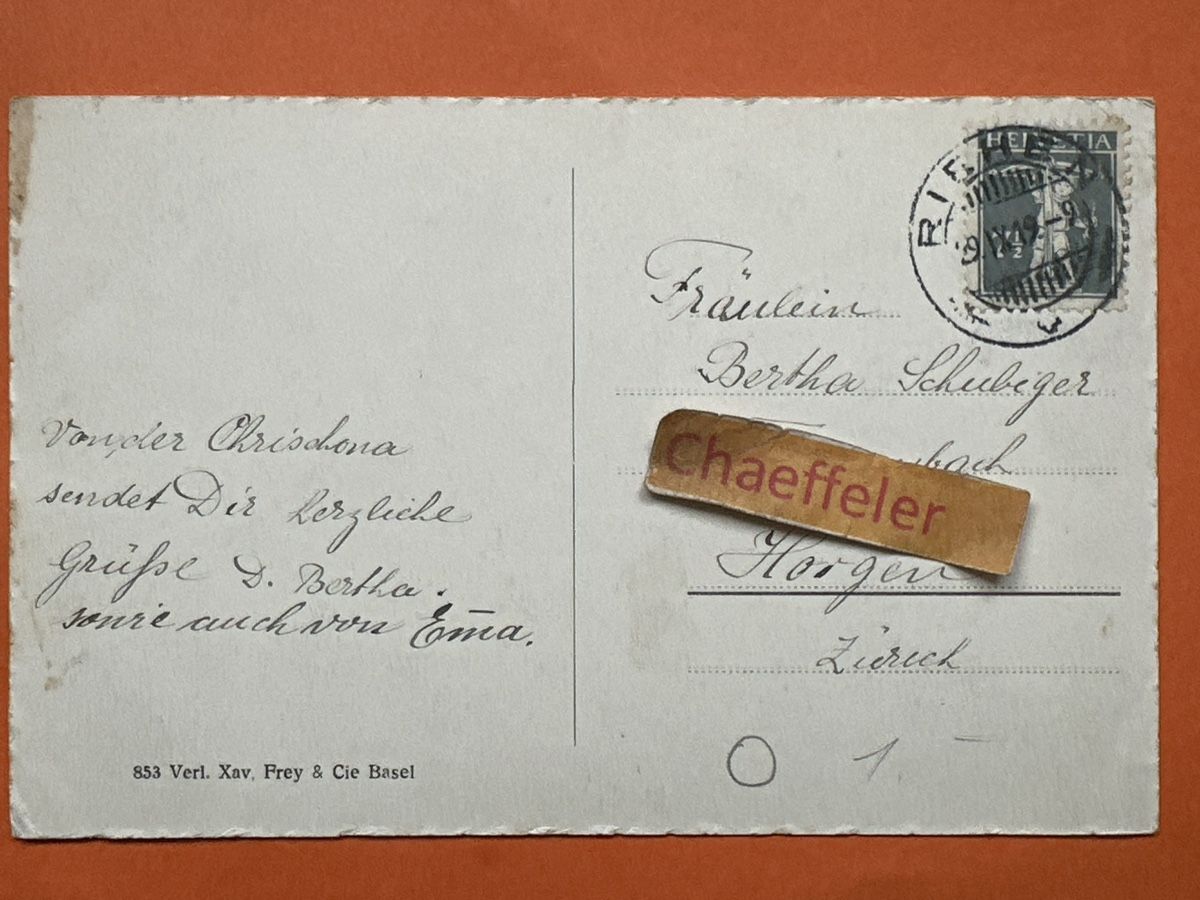 HELVETIA
RIEHEN
9.IX.19.-9
Fräulein
Bertha Schubiger
bach
Chaeffeler
Horgen
Zürich
Von der Chrischona
sendet Dir herzliche
Grüße D. Bertha.
sowie auch von Em̅a.
853 Verl. Xav. Frey & Cie Basel
O 1.-